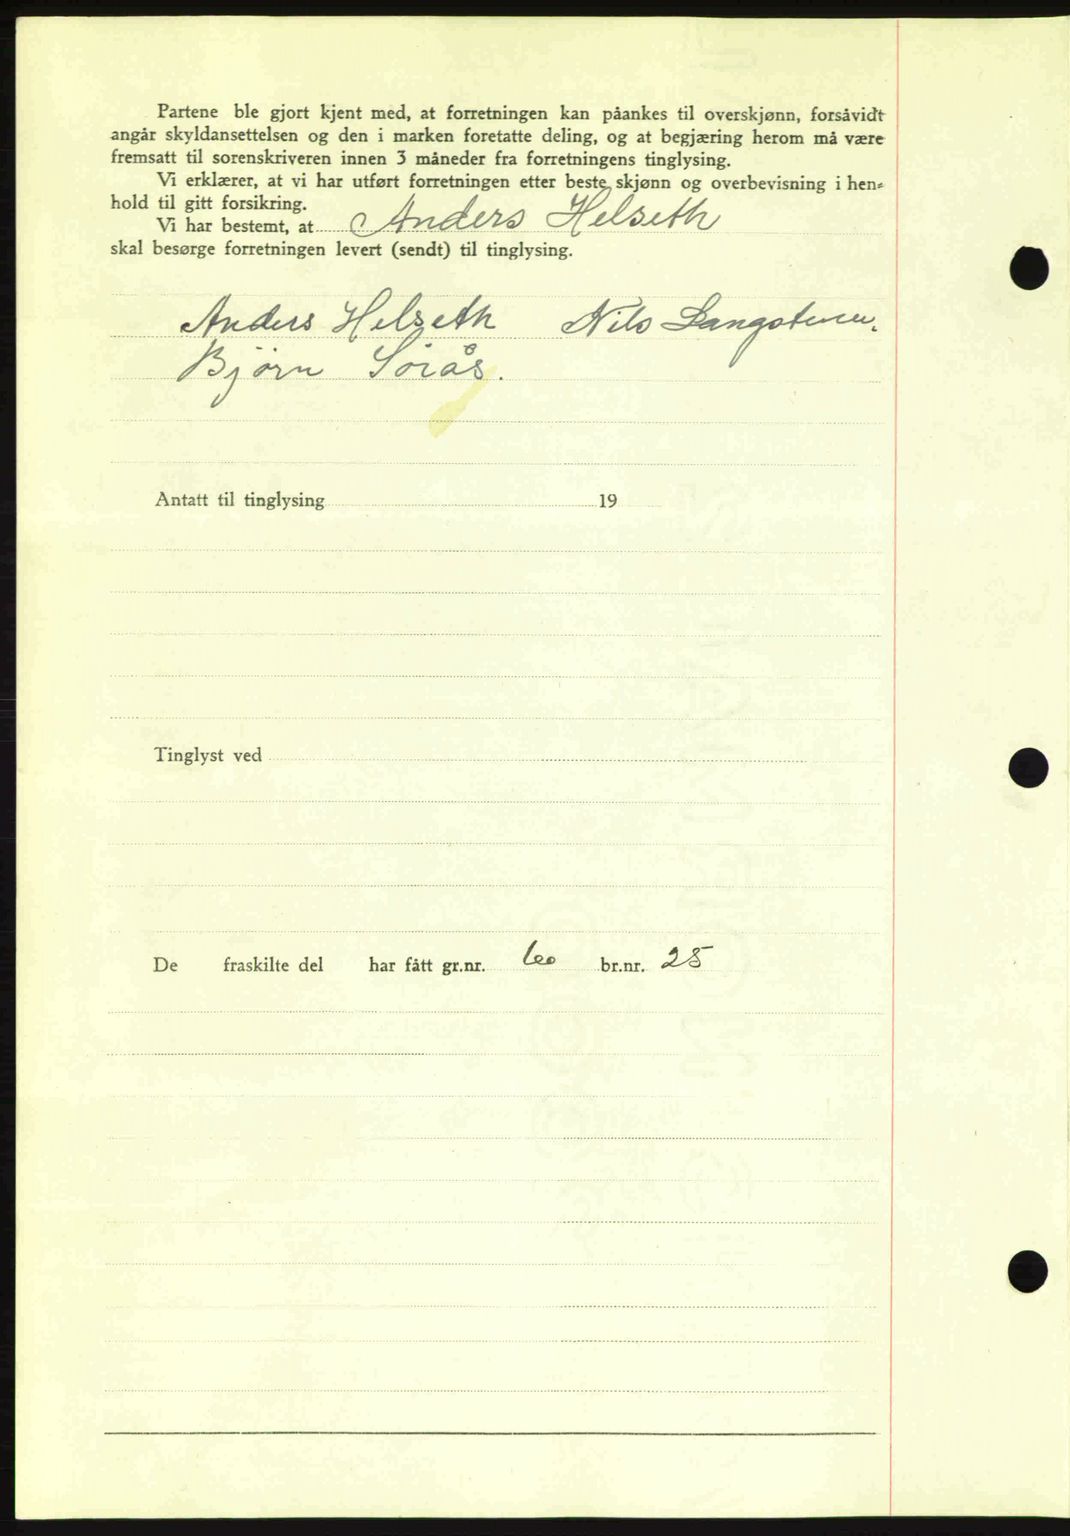 Partene ble gjort kjent med, at forretningen kan påankes til overskjønn, forsåvidt
angår skyldansettelsen og den i marken foretatte deling, og at begjæring herom må være
fremsatt til sorenskriveren innen 3 måneder fra forretningens tinglysing.
Vi erklærer, at vi har utført forretningen etter beste skjønn og overbevisning i hen-
hold til gitt forsikring.
Vi har bestemt, at Anders Helseth
skal besørge forretningen levert (sendt) til tinglysing.
Anders Helseth Nils
Bjørn Sørås.
Antatt til tinglysing 19
Tinglyst ved
De fraskilte del har fått gr.nr. 60 br.nr. 25